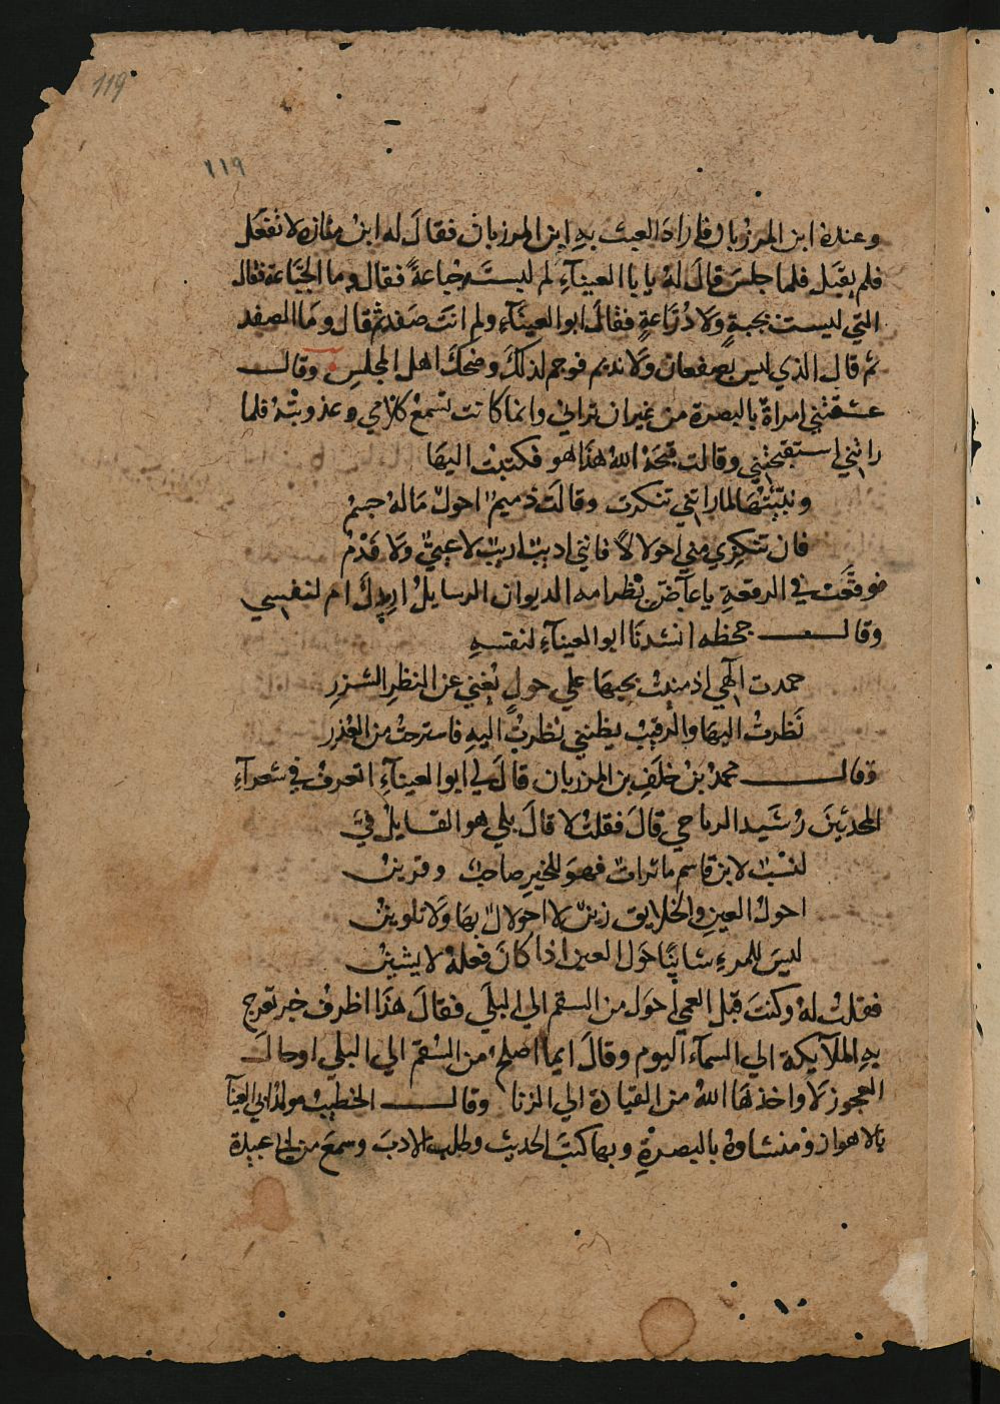 119
١١٩
وعنده ابن المرزبان فاراد العبث به ابن المرزبان فقال له ابن لا تفعل
فلم يقبل فلما جلس قال له يا با العيناء لم لبست جباعة فقال وما الجباعة فقال
التي ليست بجبة ولا دراعة فقال ابوالعيناء ولم انت صفدم قال وما الصفدم
قال الذي ليس بصفعان ولا نديم فوجم لذلك وضحك اهل المجلس وقال
عشقتني امراة بالبصرة من غيران تراني وانما كانت تسمع كلامي وعذوبته فلما
راتني استقبحتني وقالت قبحه الله هذا هو فكتبت اليها
ونبئتها لما راتني تنكرت وقالت ذميم احول ماله جسم
فان تنكري مني احولالا فانني اديب اريب لا عيي ولا فدم
فوقعت في الرقعة يا عاض بظر امه الديوان الرسايل اريدك ام لنفسي
وقال جحظه انشدنا ابو العيناء لنفسه
حمدت الهي اذ منيت بحبها علي حول يغني عن النظر الشزر
نظرت اليها والرقيب يظنني نظرت اليه فاسترحت من العذر
وقال محمد بن خلف بن المرزبان قال لي ابوا العيناء اتعرف في شعراء
المحدثين رشيد الرياحي قال فقلت لا قال بلي هو القايل في
لنسب لابن قاسم ماثرات فهو للخير صاحب وقرين
احول العين والخلايق زين لا احولال بها ولا تلوين
ليس للمرء شاينا حول العين اذا كان فعله لا يشين
فقلت له وكنت قبل العمي احول من السقم الي البلي فقال هذا اظرف خبر تعرج
به الملايكة الي السماء اليوم وقال ايما اصلح من السقم الي البلي او حال
العجوز لا واخذها الله من القيادة الي الزنا وقال الخطيب مولد ابي العينا
بالاهواز ومنشاوه بالبصرة وبها كتب الحديث وطلب الادب وسمع من ابي عبيدة